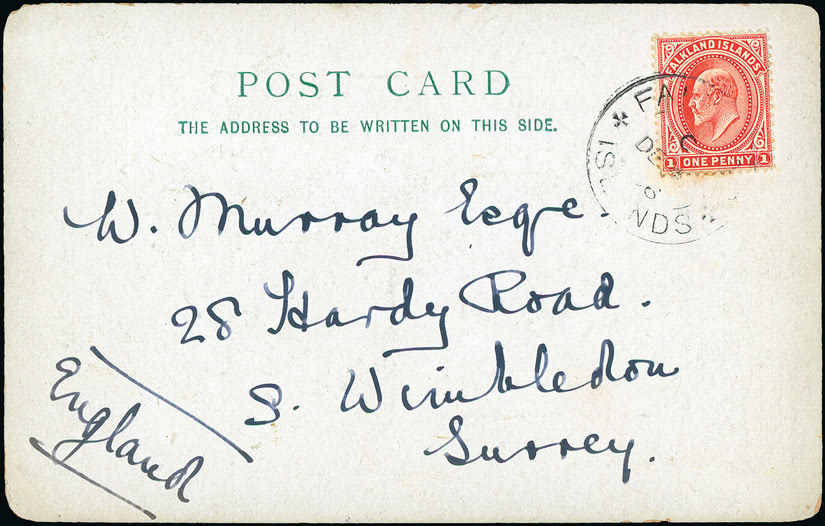 POST CARD
THE ADDRESS TO BE WRITTEN ON THIS SIDE.
FALKLAND ISLANDS
1 ONE PENNY 1
FA
C
DE
ISL
NDS
W. Murray Esqre.
28 Hardy Road.
S. Wimbledon
Surrey.
England